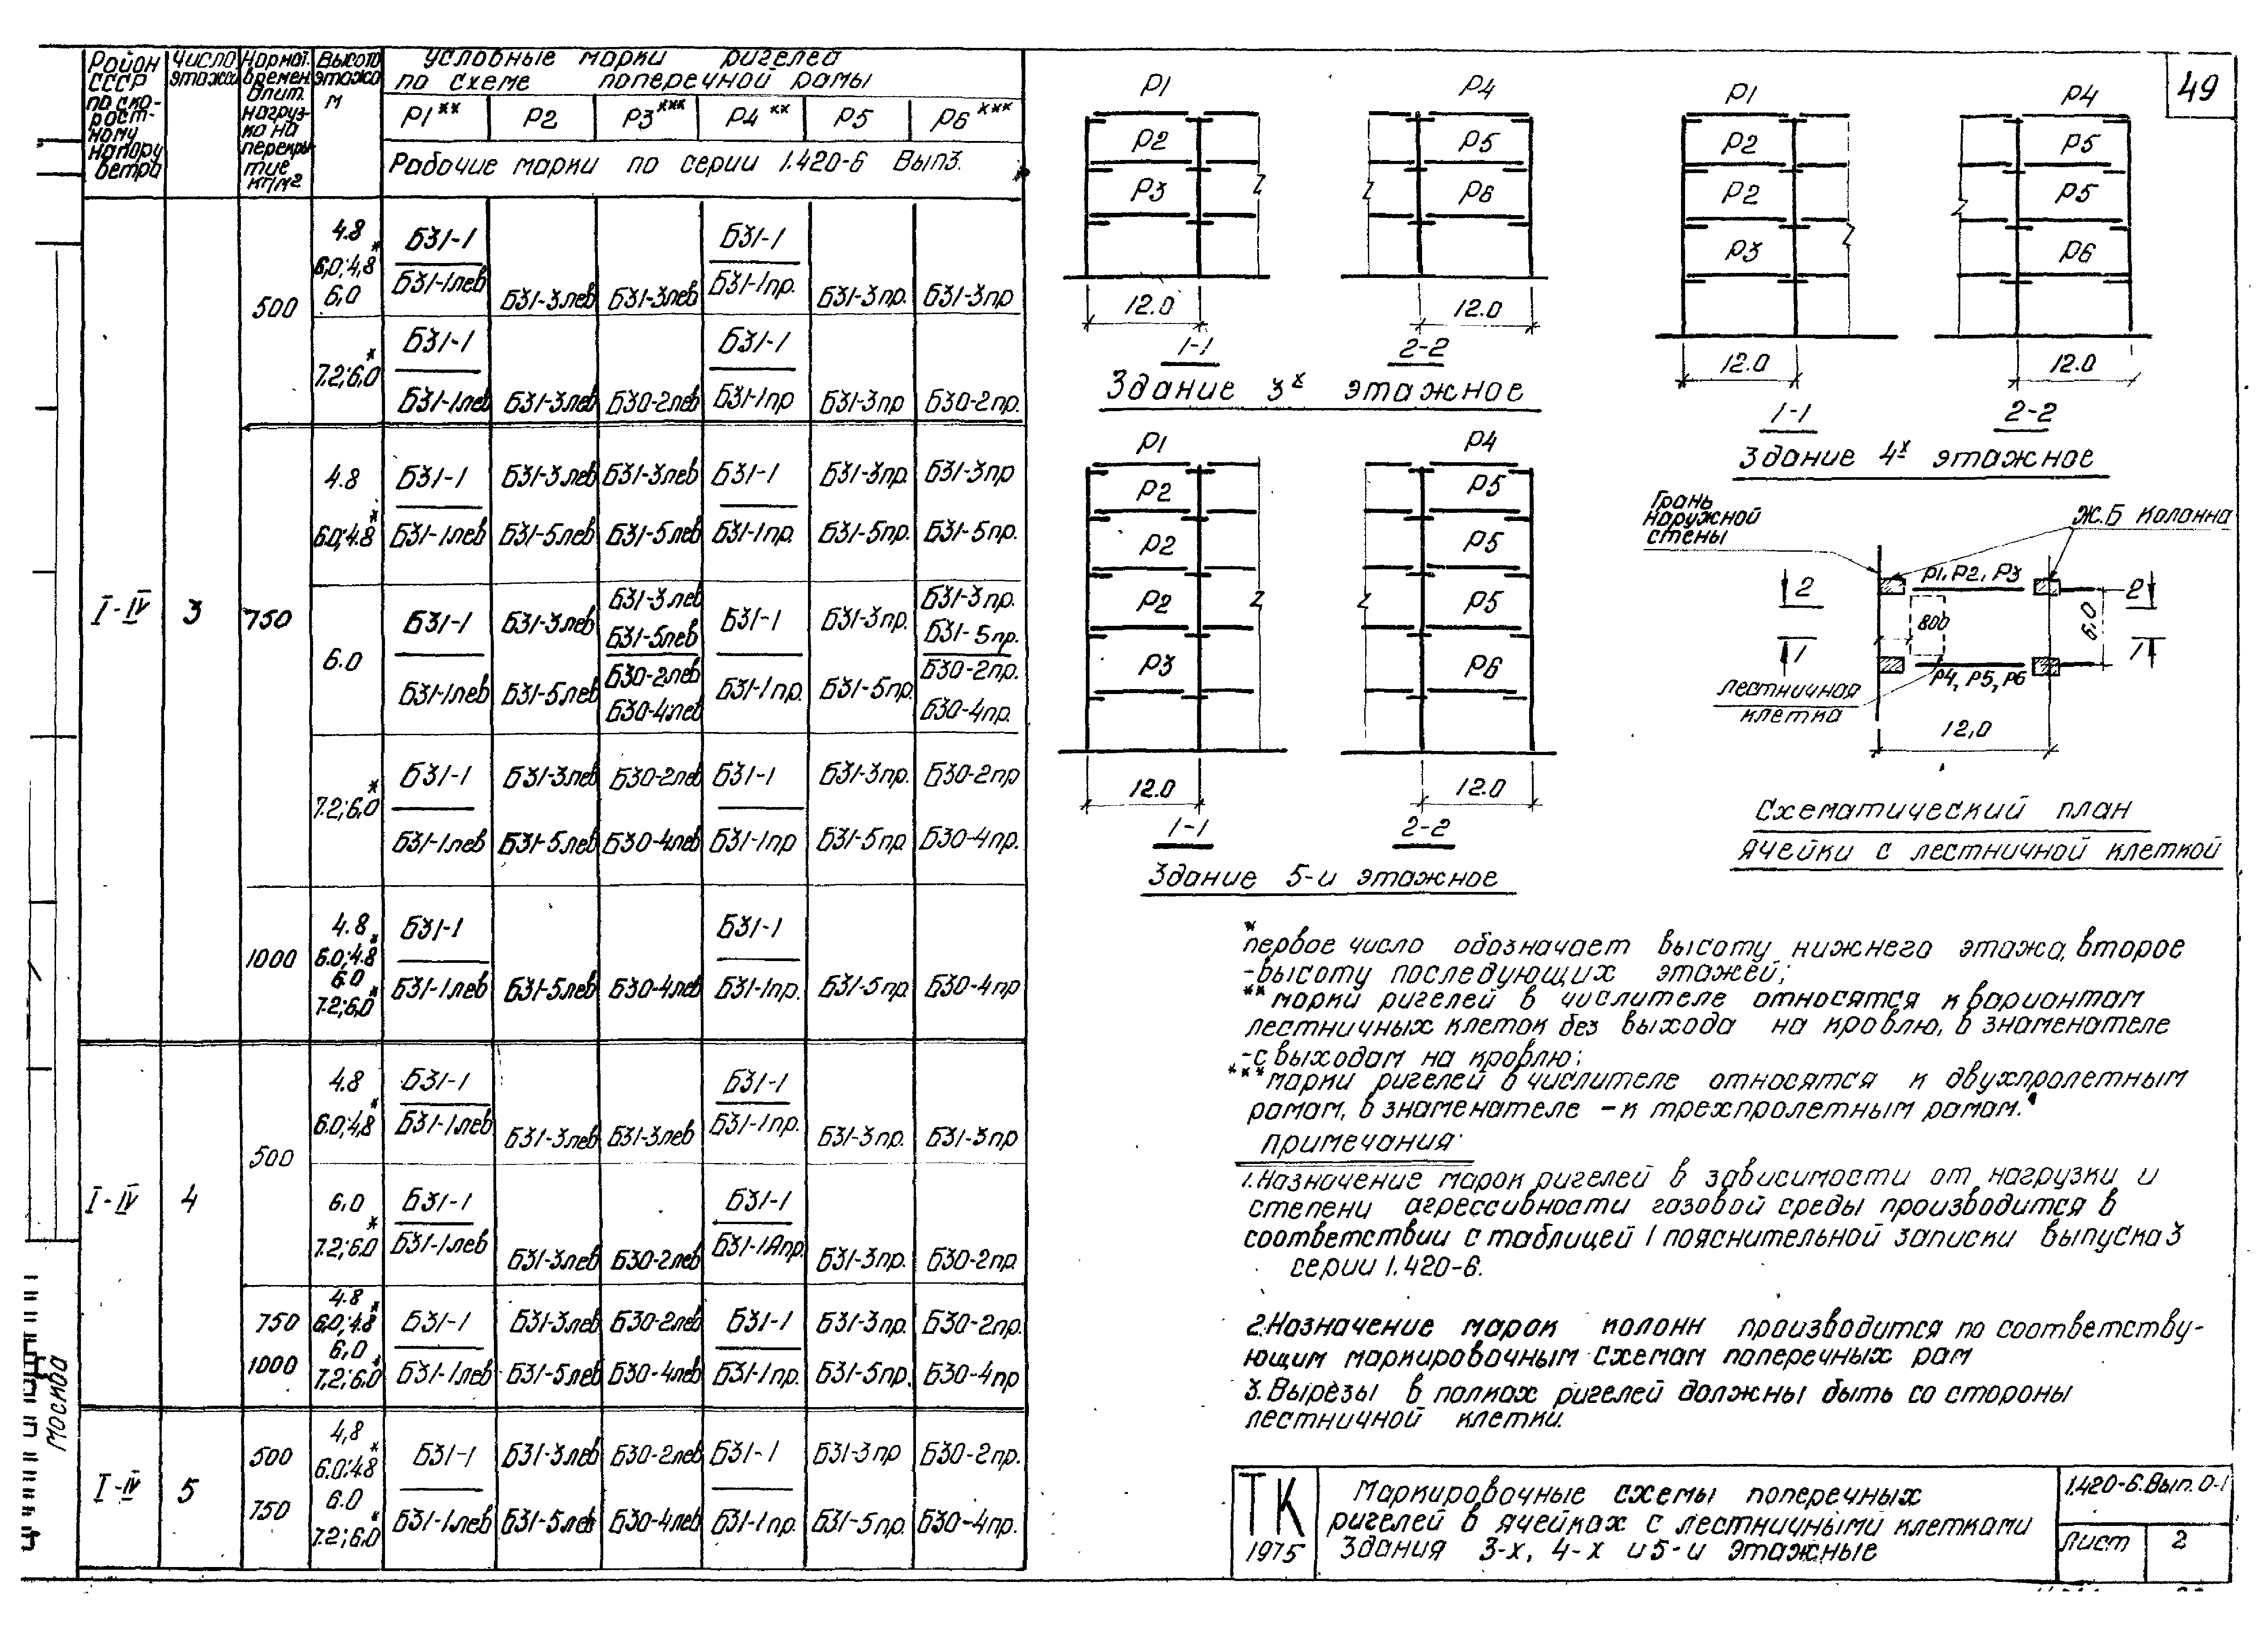 49
Район СССР по скоростному напору ветра
Число этажей
Нормат. времен. длит. нагрузка на перекрытие кг/м²
Высота этажа м
Условные марки ригелей
по схеме поперечной рамы
Р1** Р2 Р3*** Р4** Р5 Р6***
Рабочие марки по серии 1.420-6 Вып3.
I-IV 3
500
4.8
6,0;4,8*
6,0
Б31-1 Б31-1
Б31-1лев Б31-3лев Б31-3лев Б31-1пр. Б31-3пр. Б31-3пр
7.2;6,0*
Б31-1 Б31-1
Б31-1лев Б31-3лев Б30-2лев Б31-1пр Б31-3пр Б30-2пр.
750
4.8
Б31-1 Б31-3лев Б31-3лев Б31-1 Б31-3пр. Б31-3пр
6.0;4.8*
Б31-1лев Б31-5лев Б31-5лев Б31-1пр. Б31-5пр. Б31-5пр.
6.0
Б31-1 Б31-3лев Б31-3лев Б31-1 Б31-3пр. Б31-3пр.
Б31-5лев Б31-5пр.
Б31-1лев Б31-5лев Б30-2лев Б31-1пр. Б31-5пр. Б30-2пр.
Б30-4лев Б30-4пр.
7.2;6.0*
Б31-1 Б31-3лев Б30-2лев Б31-1 Б31-3пр. Б30-2пр
Б31-1лев Б31-5лев Б30-4лев Б31-1пр Б31-5пр. Б30-4пр.
1000
4.8
6.0;4.8*
6.0
7.2;6,0*
Б31-1 Б31-1
Б31-1лев Б31-5лев Б30-4лев Б31-1пр. Б31-5пр. Б30-4пр
I-IV 4
500
4.8
6.0;4,8*
Б31-1 Б31-1
Б31-1лев Б31-3лев Б31-3лев Б31-1пр. Б31-3пр. Б31-3пр
6,0
7.2;6.0*
Б31-1 Б31-1
Б31-1лев Б31-3лев Б30-2лев Б31-1Апр. Б31-3пр. Б30-2пр.
750
1000
4.8
6,0;4.8*
6,0
7,2;6,0*
Б31-1 Б31-3лев Б30-2лев Б31-1 Б31-3пр. Б30-2пр.
Б31-1лев Б31-5лев Б30-4лев Б31-1пр. Б31-5пр. Б30-4пр
I-IV 5
500
750
4,8
6.0;4.8*
6.0
7.2;6,0*
Б31-1 Б31-3лев Б30-2лев Б31-1 Б31-3пр Б30-2пр.
Б31-1лев Б31-5лев Б30-4лев Б31-1пр. Б31-5пр. Б30-4пр.
Москва
Р1 Р4
Р2 Р5
Р3 Р6
12.0 12.0
1-1 2-2
Здание 3х этажное
Р1 Р4
Р2 Р5
Р2 Р5
Р3 Р6
12.0 12.0
1-1 2-2
Здание 4х этажное
Р1 Р4
Р2 Р5
Р2 Р5
Р2 Р5
Р3 Р6
12.0 12.0
1-1 2-2
Здание 5-и этажное
Грань
наружной
стены
Ж.Б колонна
Р1, Р2, Р3
2 2
800
6,0
1 1
Р4, Р5, Р6
Лестничная
клетка
12,0
Схематический план
ячейки с лестничной клеткой
* первое число обозначает высоту нижнего этажа, второе
-высоту последующих этажей;
** марки ригелей в числителе относятся к вариантам
лестничных клеток без выхода на кровлю, в знаменателе
-с выходам на кровлю;
*** марки ригелей в числителе относятся к двухпролетным
рамам, в знаменателе - к трехпролетным рамам.
Примечания:
1. Назначение марок ригелей в зависимости от нагрузки и
степени агрессивности газовой среды производится в
соответствии с таблицей 1 пояснительной записки выпуска 3
серии 1.420-6.
2. Назначение марок колонн производится по соответству-
ющим маркировочным схемам поперечных рам
3. Вырезы в полках ригелей должны быть со стороны
лестничной клетки.
ТК
1975
Маркировочные схемы поперечных
ригелей в ячейках с лестничными клетками
Здания 3-х, 4-х и 5-и этажные
1.420-6.Вып.0-1
Лист 2